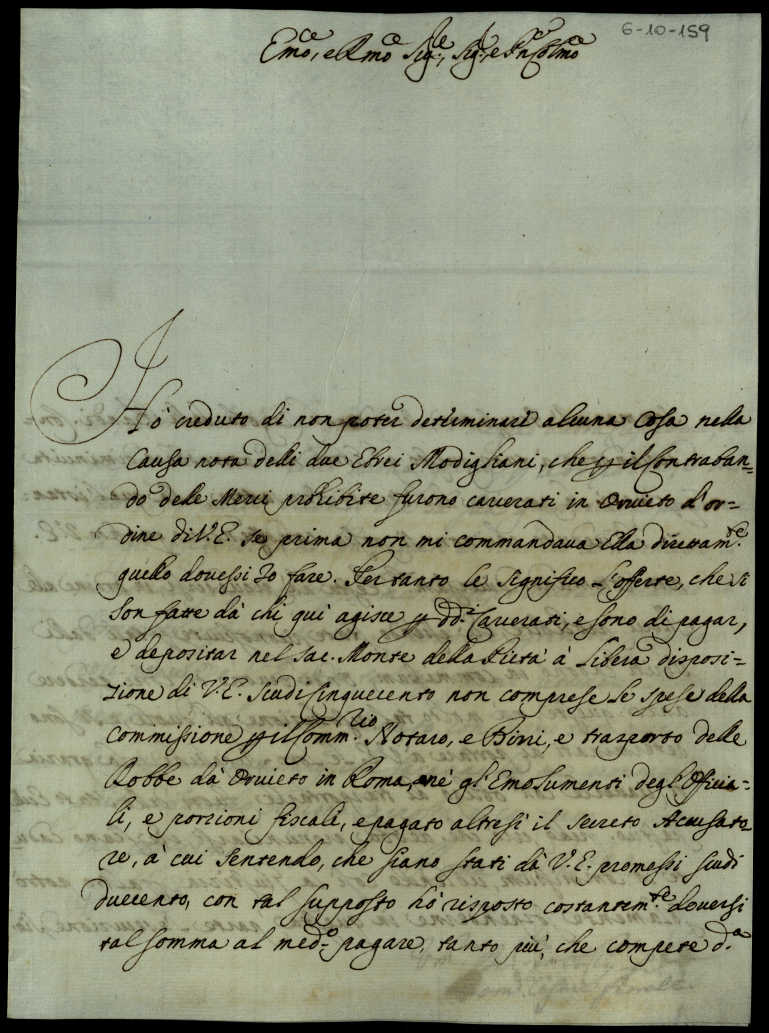 6-10-159
Em̃o, e Rmõ Sig.re, Sig.re, e Pñ Colmõ
Hò creduto di non poter determinare alcuna Cosa nella
Causa nota delli due Ebrei Modigliani, che p il Contraban=
do delle Merci prohibite furono carcerati in Orvieto d'or=
dine di V.E. se prima non mi commandava Ella direttam.te
quello dovessi Io fare. Pertanto le significo L'offerte, che si
son fatte dà chi quì agisce p dd.i Carcerati, e sono di pagar,
e depositar nel Sac. Monte della Pietà à Libera disposi=
zione di V.E. scudi Cinquecento non comprese le spese della
Commissione p il Comm.rio Notaro, e Birri, e trasporto delle
Robbe dà Orvieto in Roma, nè gl'Emolumenti degl'Officia=
li, e porzioni fiscali, e pagato altresì il secreto Accusato
re, à cui sentendo, che siano stati dà V.E. promessi scudi
duecento, con tal supposto hò risposto costantem.te doversi
tal somma al med.o pagare, tanto più, che compete d.a